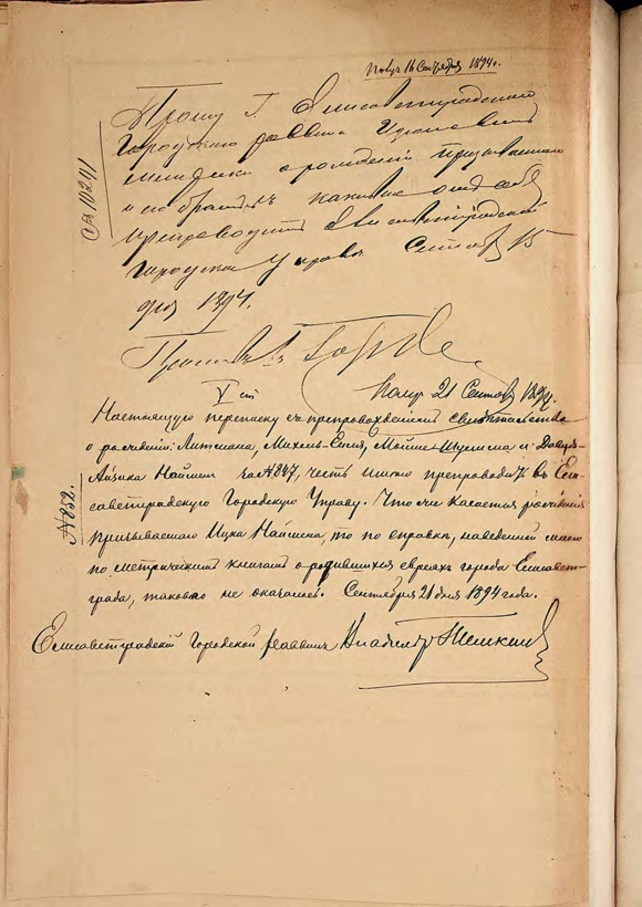 Получ 16 Сентября 1894 г.
Прошу Г. Елисаветградскаго
Городского раввина
о рождении призываемаго
и его братьевъ каковые
препроводить Елисаветградской
Городской Управе Сентября 15
дня 1894.
№ 10241
Получ 21 Сентяб 1894.
V ст
Настоящую переписку съ препровождениемъ свидетельства
о рождении: Литмана, Михель-Сися, Мойше Шулима и Давидъ-
Айзика Найшем за № 847, честь имею препроводить въ Ели-
саветградскую Городскую Управу. Что же касается рождения
призываемаго Ицка Найшема, то по справке, наведенной мною
по метрическимъ книгамъ о родившихся евреяхъ города Елисавет-
града, таково не оказалось. Сентября 21 дня 1894 года.
№ 852.
Елисаветградский Городской Раввинъ Владимiръ Темкинъ